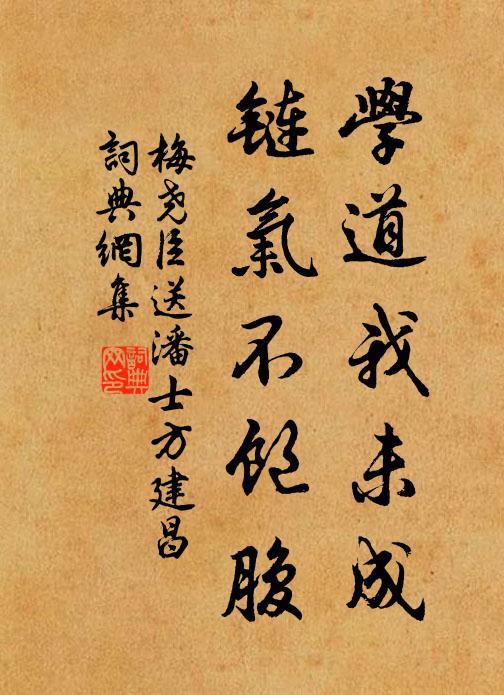 學道我未成
鏈氣不飽腹
梅堯臣送潘士方建昌
詞典網集
詞典網印